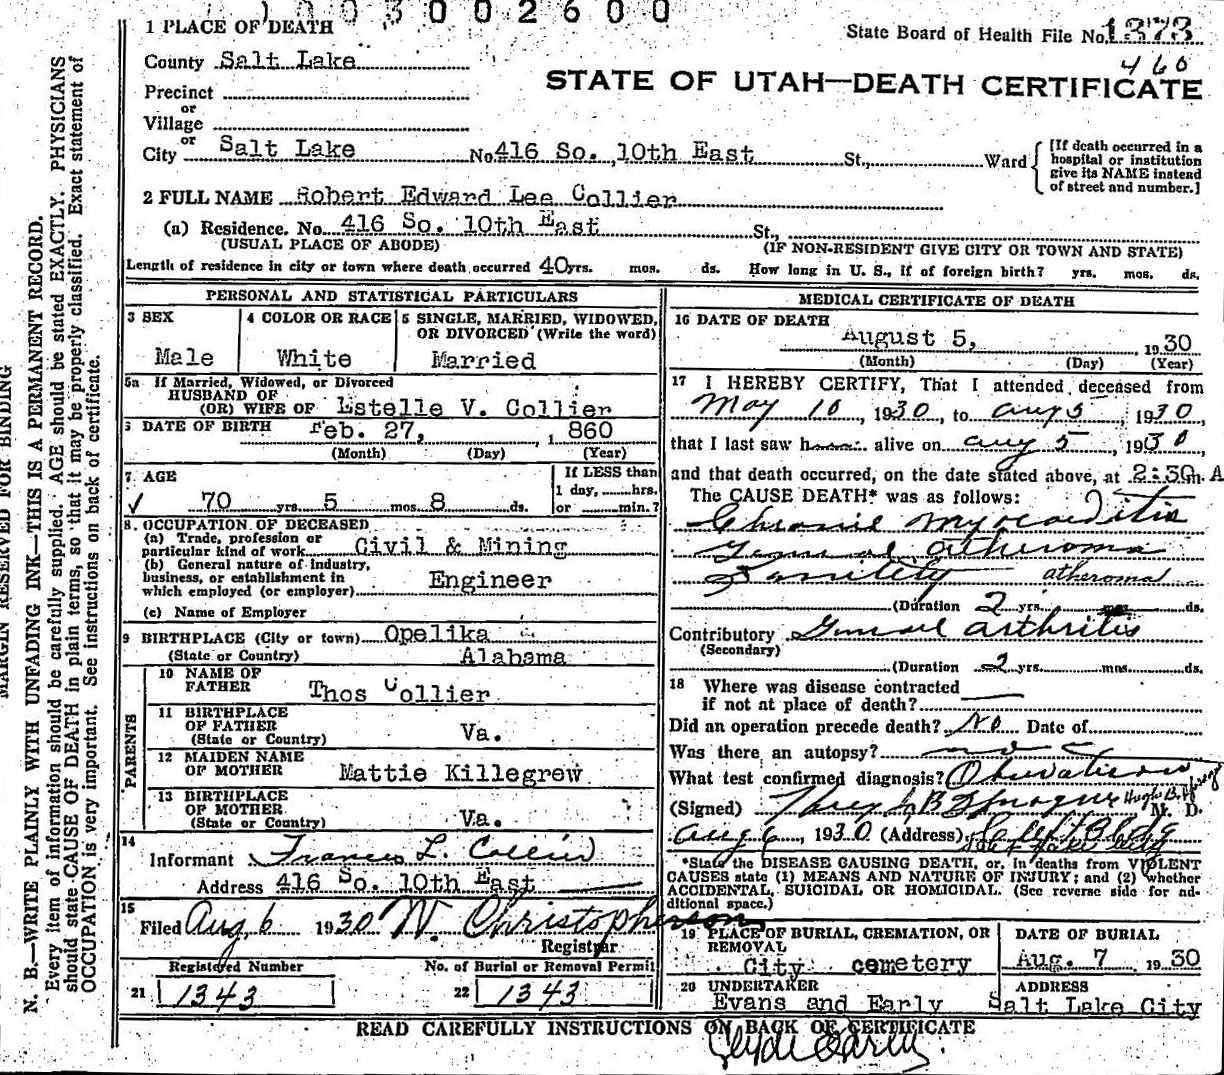 1003002600
1 PLACE OF DEATH
State Board of Health File No. 1373
460
County Salt Lake
STATE OF UTAH—DEATH CERTIFICATE
Precinct
or
Village
or
City Salt Lake No. 416 So. 10th East St., Ward
[If death occurred in a
hospital or institution
give its NAME instead
of street and number.]
2 FULL NAME Robert Edward Lee Collier
(a) Residence. No. 416 So. 10th East St.,
(USUAL PLACE OF ABODE) (IF NON-RESIDENT GIVE CITY OR TOWN AND STATE)
Length of residence in city or town where death occurred 40 yrs. mos. ds. How long in U. S., if of foreign birth? yrs. mos. ds.
PERSONAL AND STATISTICAL PARTICULARS
3 SEX
Male
4 COLOR OR RACE
White
5 SINGLE, MARRIED, WIDOWED,
OR DIVORCED (Write the word)
Married
5a If Married, Widowed, or Divorced
HUSBAND OF
(OR) WIFE OF Estelle V. Collier
6 DATE OF BIRTH Feb. 27, 1860
(Month) (Day) (Year)
7 AGE
✓ 70 yrs. 5 mos. 8 ds.
If LESS than
1 day, hrs.
or min.?
8. OCCUPATION OF DECEASED
(a) Trade, profession or
particular kind of work Civil & Mining
(b) General nature of industry,
business, or establishment in
which employed (or employer) Engineer
(c) Name of Employer
9 BIRTHPLACE (City or town) Opelika
(State or Country) Alabama
PARENTS
10 NAME OF
FATHER Thos Collier
11 BIRTHPLACE
OF FATHER
(State or Country) Va.
12 MAIDEN NAME
OF MOTHER Mattie Killegrew
13 BIRTHPLACE
OF MOTHER
(State or Country) Va.
14
Informant Frances L. Collier
Address 416 So. 10th East
15
Filed Aug. 6 1930 W. Christopherson
Registrar
Registered Number
21 1343
No. of Burial or Removal Permit
22 1343
MEDICAL CERTIFICATE OF DEATH
16 DATE OF DEATH
August 5, 1930
(Month) (Day) (Year)
17 I HEREBY CERTIFY, That I attended deceased from
May 10, 1930, to Aug 5, 1930,
that I last saw h alive on Aug 5, 1930
and that death occurred, on the date stated above, at 2:30 m. A
The CAUSE DEATH* was as follows:
Chronic Myocarditis
General atheroma
atheroma
(Duration 2 yrs. mos. ds.
Contributory General arthritis
(Secondary)
(Duration 2 yrs. mos. ds.
18 Where was disease contracted
if not at place of death?
Did an operation precede death? No Date of
Was there an autopsy? no
What test confirmed diagnosis? Observation
(Signed) M. D.
Aug 6, 1930 (Address)
*State the DISEASE CAUSING DEATH, or, in deaths from VIOLENT
CAUSES state (1) MEANS AND NATURE OF INJURY; and (2) whether
ACCIDENTAL, SUICIDAL OR HOMICIDAL. (See reverse side for ad-
ditional space.)
19 PLACE OF BURIAL, CREMATION, OR
REMOVAL
City cemetery
DATE OF BURIAL
Aug. 7 1930
20 UNDERTAKER
Evans and Early
ADDRESS
Salt Lake City
READ CAREFULLY INSTRUCTIONS ON BACK OF CERTIFICATE
Clyde Early.
MARGIN RESERVED FOR BINDING
N. B.—WRITE PLAINLY WITH UNFADING INK—THIS IS A PERMANENT RECORD.
Every item of information should be carefully supplied. AGE should be stated EXACTLY. PHYSICIANS
should state CAUSE OF DEATH in plain terms, so that it may be properly classified. Exact statement of
OCCUPATION is very important. See instructions on back of certificate.